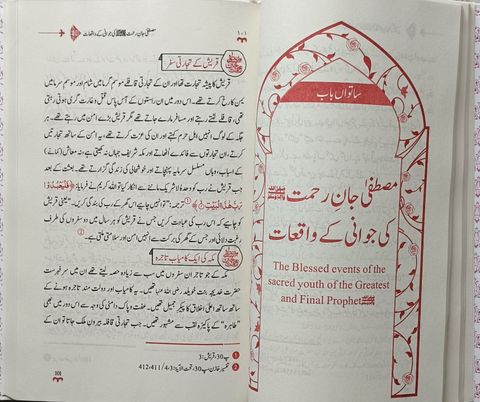 ساتواں باب
مصطفیٰ جانِ رحمت ﷺ
کی جوانی کے واقعات
The Blessed events of the
sacred youth of the Greatest
and Final Prophet ﷺ
۱۰۱ مصطفیٰ جانِ رحمت ﷺ کی جوانی کے واقعات
قریش کے تجارتی سفر
قریش کا پیشہ تجارت تھا اور ان کے تجارتی قافلے موسم گرما میں شام اور موسم سرما میں
یمن کا رخ کرتے تھے۔ اس دور میں ان راستوں کے آس پاس قتل و غارت گری ہوتی رہتی
تھی، قافلے لٹتے رہتے اور مسافر مارے جاتے تھے مگر قریش بڑے امن میں رہتے تھے۔ ہر
جگہ کے لوگ انہیں اہل حرم کہتے اور ان کی عزت کرتے تھے، یہ امن کے ساتھ تجارتیں
کرتے، ان تجارتوں سے فائدے اٹھاتے اور مکہ شریف جہاں نہ کھیتی ہے، نہ معاش (کمانے) کے
اسباب، وہاں مسلسل سرمایہ پہنچاتے اور خوشحالی کی زندگی گزارتے تھے۔ بعثت کے بعد
جب قریش نے رب وحدہ لا شریک ماننے سے انکار کیا تو اللہ کریم نے فرمایا: ﴿فَلْیَعْبُدُوْا
رَبَّ هٰذَا الْبَیْتِ﴾ ① ترجمہ: "تو انہیں چاہیے اس گھر کے رب کی بندگی کریں۔" یعنی قریش
کو چاہیے کہ اس رب کی عبادت کریں جس نے قریش کو ہر سال میں دو سفروں کی طرف
رغبت دلائی اور جس کے گھر کی برکت سے انہیں امن اور سلامتی ملتی ہے۔ ②
مکہ کی ایک کامیاب تاجرہ
مکہ کے جو تاجر ان سفروں میں سب سے زیادہ حصہ لیتے تھے ان میں سر فہرست
حضرت خدیجہ بنت خویلد رضی اللہ عنہا تھیں۔ آپ کامیاب اور دولت مند تاجرہ ہونے کے
ساتھ ساتھ اعلیٰ اخلاق کا پیکر جمیل تھیں۔ عفت و پاک دامنی کی وجہ سے اس دور میں بھی
"طاہرہ" کے پاکیزہ لقب سے مشہور تھیں۔ جب تجارتی قافلہ بیرون ملک جاتا تو ان کے
① پ30، قریش: 3
② تفسیر خازن، پ30، قریش، تحت الآیۃ: 3، 4/ 411-412
101